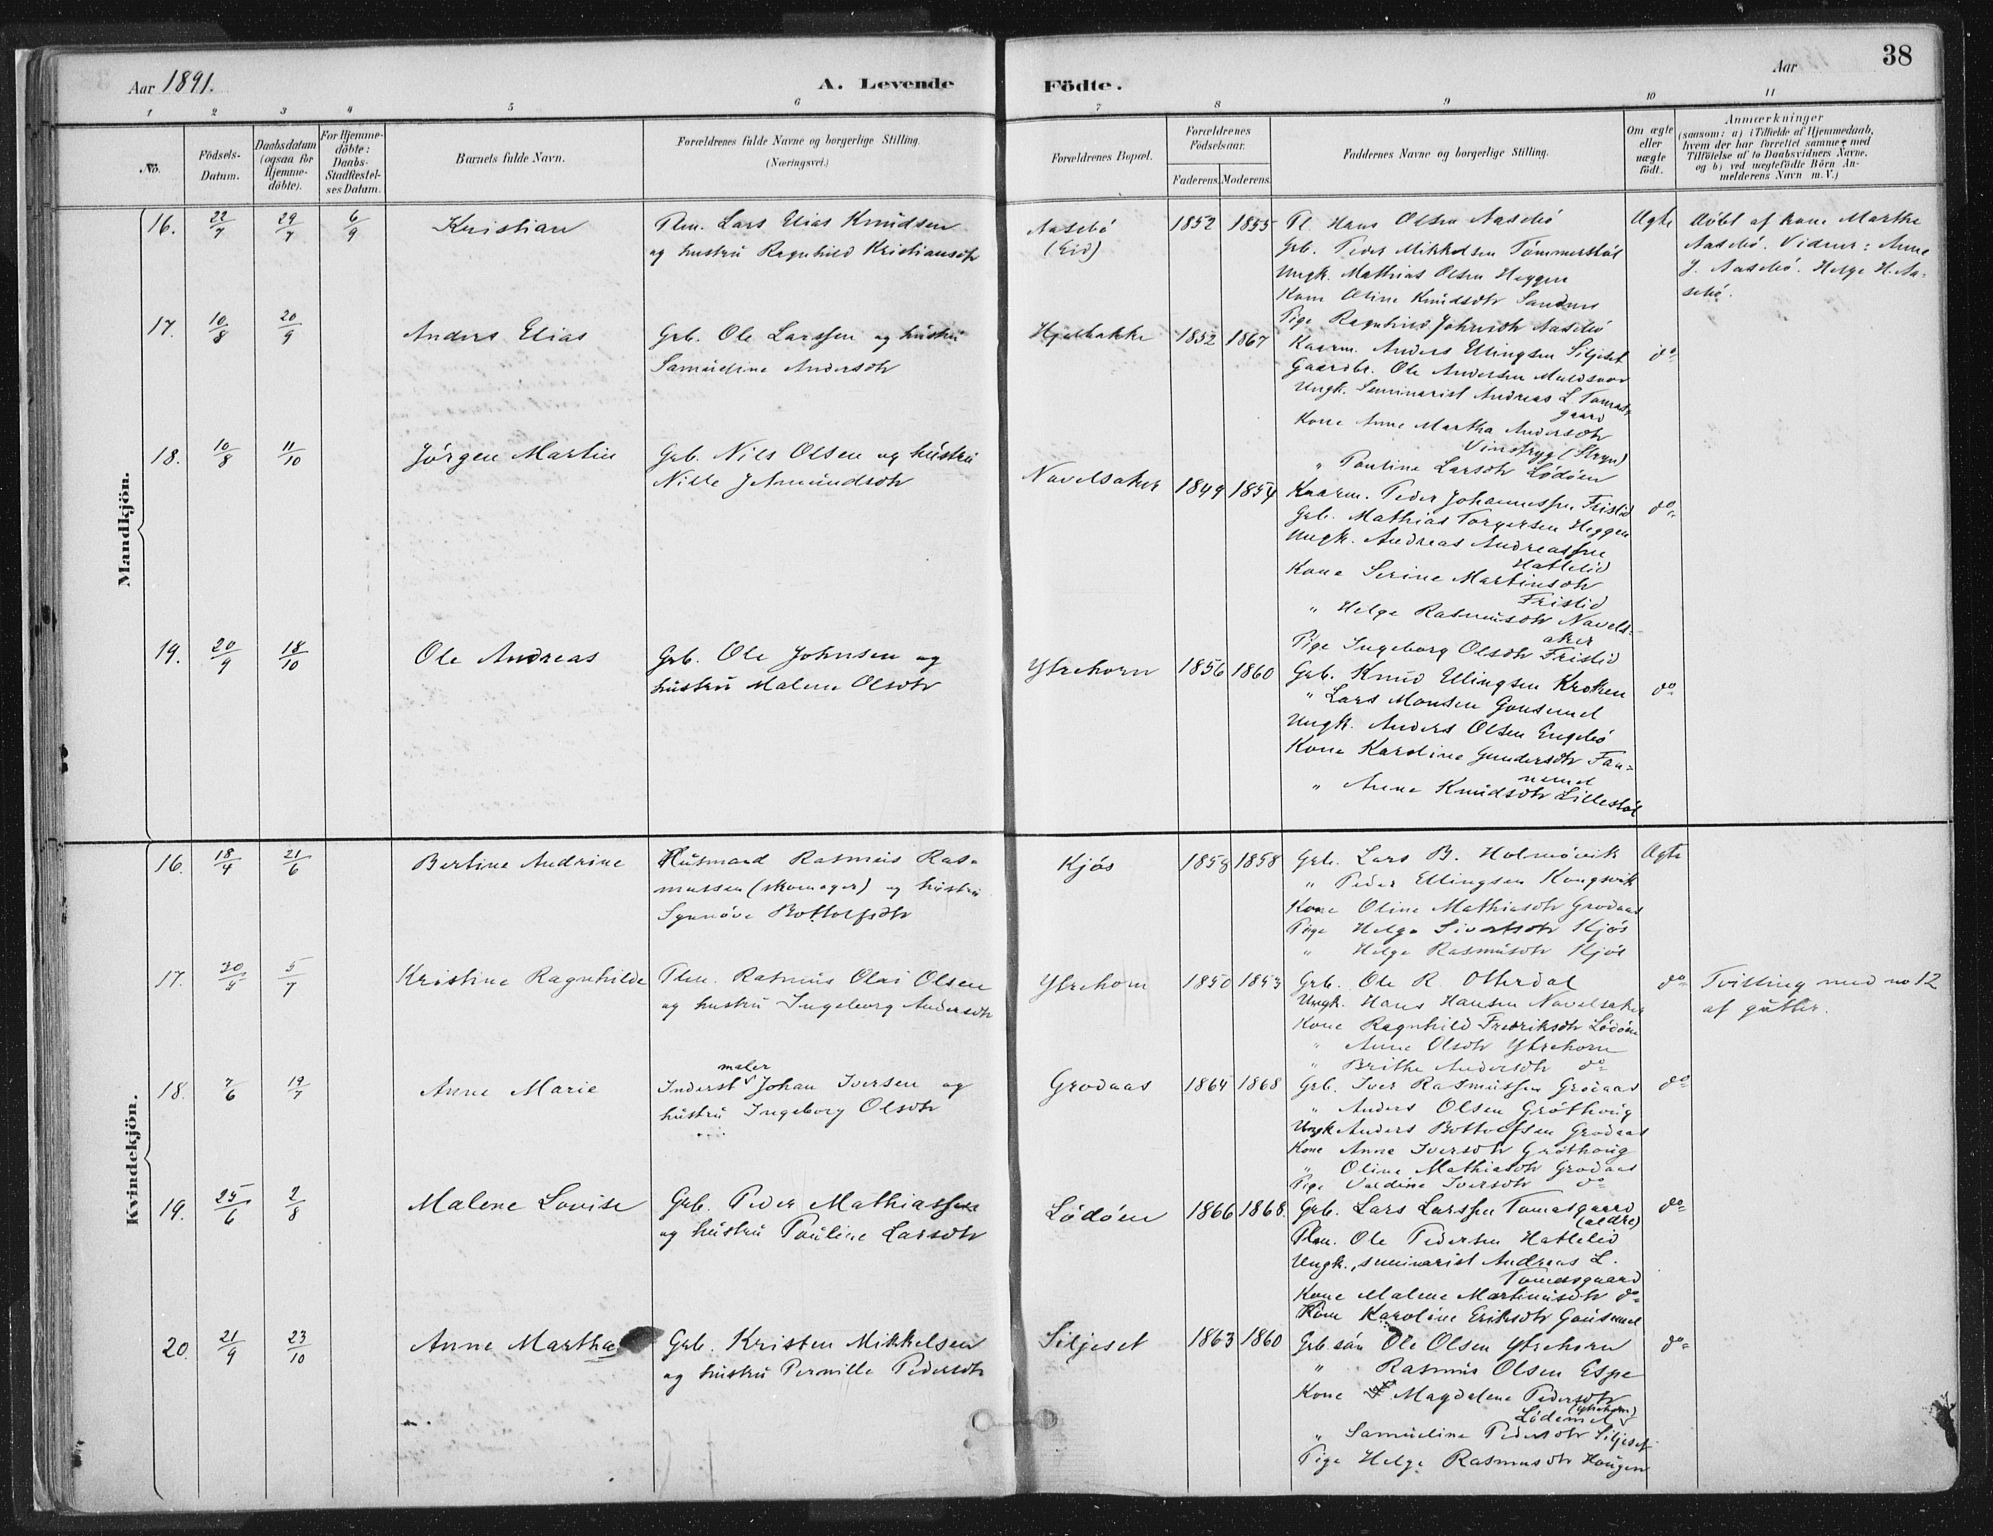 Aar 1891. A. Levende Födte. Aar 38
1 2 3 4 5 6 7 8 9 10 11
No.
Födsels-Datum.
Daabsdatum (ogsaa for Hjemme-döbte).
For Hjemme-döbte: Daabs-Stadfæstel-ses Datum.
Barnets fulde Navn.
Forældrenes fulde Navne og borgerlige Stilling.
(Næringsvei.)
Forældrenes Bopæl.
Forældrenes Födselsaar.
Faderens. Moderens.
Faddernes Navne og borgerlige Stilling.
Om ægte eller uægte födt.
Anmærkninger
(saasom: a) i Tilfælde af Hjemmedaab,
hvem der har forrettet samme med
Tilföielse af to Daabsvidners Navne,
og b) ved uægtefödte Börn An-
melderens Navn m. V.)
Mandkjön.
16. 22/7 29/7 6/9 Kristian
Plm. Lars Elias Knudsen
og hustru Ragnhild Kristiansdtr
Aasebö
(Eid)
1852 1855
Pl. Hans Olsen Aasebö
Grb. Peder Mikkelsen Tömmerstöl
Ungk. Mathias Olsen Heggen
Kone Oline Knudsdtr Sandnes
Pige Ragnhild Johnsdtr Aasebö
Ægte
Döbt af kone Marthe
Aasebö. Vidner: Anne
J. Aasebö. Helge H. Aa-
sebö.
17. 10/8 20/9 Anders Elias
Grb. Ole Larssen og hustru
Samueline Andersdtr
Hjelbakke
1852 1867
Kaarm. Anders Ellingsen Siljeset
Gaardbr. Ole Andersen Muldsvor
Ungk. Seminarist Andreas L. Tomas-
gaard
Kone Anne Martha Andersdtr
Vinsryg (Stryn)
" Pauline Larsdtr Lödöen
do
18. 10/8 11/10 Jörgen Martin
Grb. Nils Olsen og hustru
Nille J Amundsdtr
Navelsaker
1849 1854
Kaarm. Peder Johannessen Fristid
Grb. Mathias Torgersen Heggen
Ungk. Andreas Andreassen
Hattelid
Kone Serine Martinsdtr
Fristid
" Helge Rasmusdtr Navels-
aker
Pige Ingeborg Olsdtr Fristid
do
19. 20/9 18/10 Ole Andreas
Grb. Ole Johnsen og
hustru Malene Olsdtr
Ytrehorn
1856 1860
Grb. Knud Ellingsen Kroken
" Lars Monsen Gausemel
Ungk. Anders Olsen Engebö
Kone Karoline Gundersdtr Fan-
nemel
" Anne Knudsdtr Lillestöl
do
Kvindekjön.
16. 18/4 21/6 Bertine Andrine
Husmand Rasmus Ras-
mussen (skomager) og hustru
Synnöve Bottolfsdtr
Kjös
1858 1858
Grb. Lars B. Holmövik
" Peder Ellingsen Kongsvik
Kone Oline Mathiasdtr Grodaas
Pige Helga Sivertsdtr Kjös
" Helge Rasmusdtr Kjös
Ægte
17. 5/7 Kristine Ragnhilde
Plm. Rasmus Olai Olsen
og hustru Ingeborg Andersdtr
Ytrehorn
1850 1853
Grb. Ole R. Otterdal
Ungk. Hans Hansen Navelsaker
Kone Ragnhild Fredriksdtr Lödöen
" Anne Olsdtr Ytrehorn
" Brithe Andersdtr do
do
Tvilling med no 12
af gutter.
18. 7/6 19/7 Anne Marie
maler
Inderst Johan Iversen og
hustru Ingeborg Olsdtr
Grodaas
1864 1868
Grb. Iver Rasmussen Grodaas
" Anders Olsen Gröthoug
Ungk Anders Bottolfsen Grodaas
Kone Anne Iversdtr Gröthoug
" Oline Mathiasdtr Grodaas
Pige Valdine Iversdtr do
do
19. 25/6 2/8 Malene Lovise
Grb. Peder Mathiassen
og hustru Pauline Larsdtr
Lödöen
1866 1868.
Grb. Lars Larssen Tomasgaard
(ældre)
Plm. Ole Pedersen Hattelid
Ungk., seminarist Andreas L.
Tomasgaard
Kone Malene Martinusdtr do
Kone Karoline Eriksdtr Gausemel
do
20. 21/9 23/10 Anne Martha
Grb. Kristen Mikkelsen
og hustru Pernille Pedersdtr
Siljeset
1863 1860
Grb.sön Ole Olsen Ytrehorn
" Rasmus Olsen Espe
Kone Magdalene Pedersdtr
(Ytrehorn)
Lödemel
" Samueline Pedersdtr Siljeset
Pige Helge Rasmusdtr Haugen
do